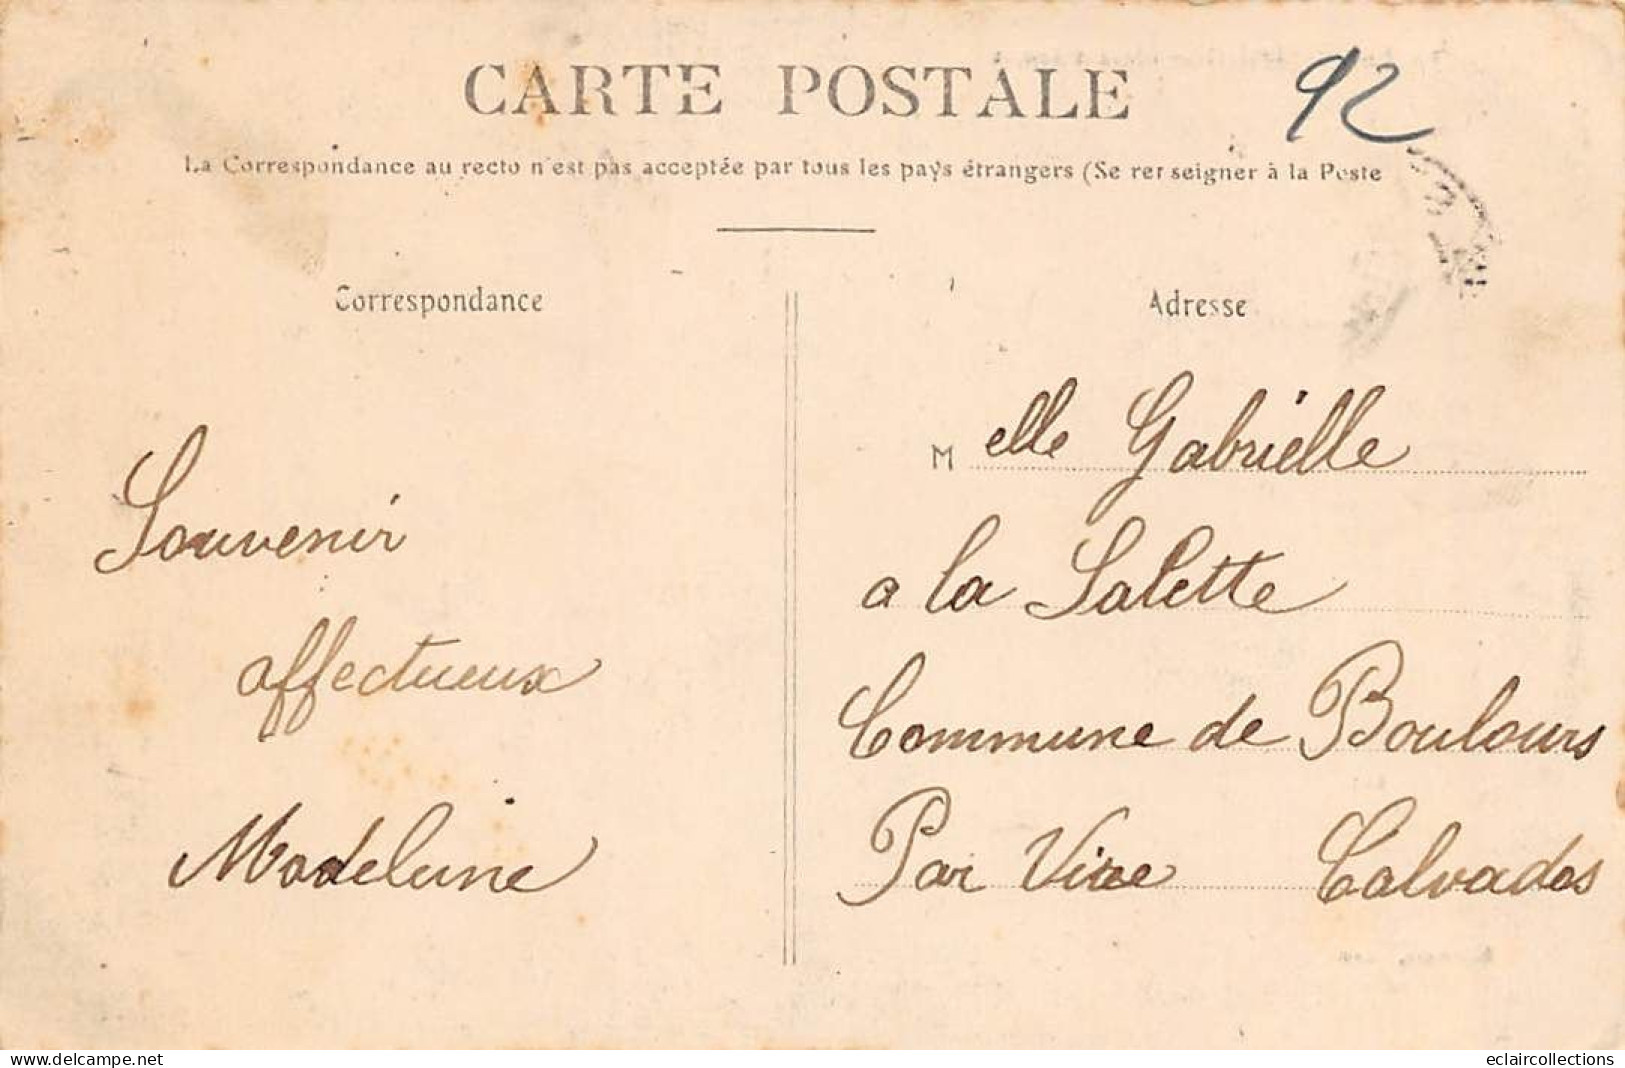 CARTE POSTALE
92
La Correspondance au recto n'est pas acceptée par tous les pays étrangers (Se renseigner à la Poste
Correspondance
Souvenir
affectueux
Madeleine
Adresse
Melle Gabrielle
a la Salette
Commune de Boulours
Par Vire Calvados
eclaircollections